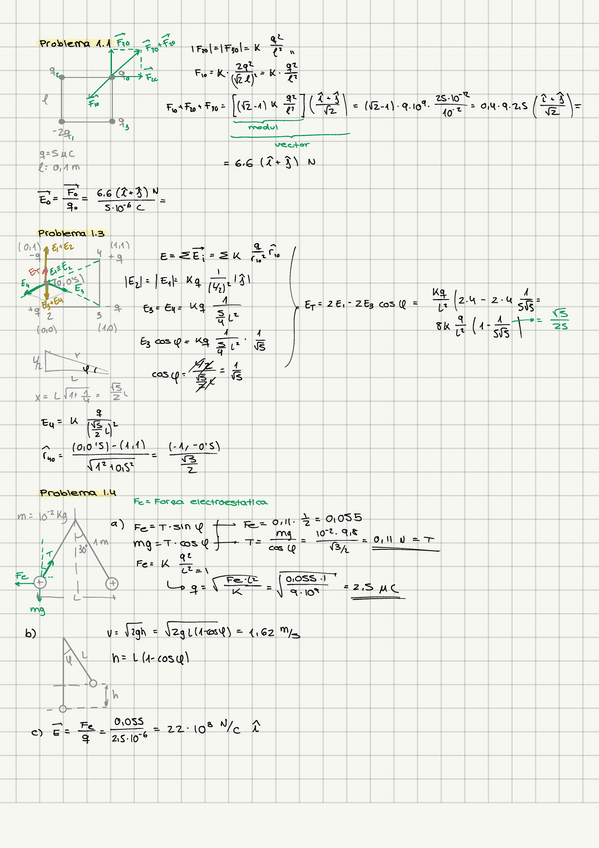 Problema 1.1
F₂₀ F₃₀+F₂₀ F₃₀ F₁₀
q₂ q₀
l
-2q₁ q₃
q=5 μC
l = 0,1 m
|F₂₀|=|F₃₀| = K q²/l² N
F₁₀ = K · 2q²/(√2 l)² = K · q²/l²
F₁₀+F₂₀+F₃₀ = [(√2-1) K q²/l²] (î+ĵ/√2) = (√2-1)·9·10⁹ · 25·10⁻¹²/10⁻² = 0,4·9·2,5 (î+ĵ/√2) =
modul
vector
= 6.6 (î+ĵ) N
E₀ = F₀/q₀ = 6.6 (î+ĵ) N / 5·10⁻⁶ C =
Problema 1.3
(0,1) E₁+E₂ (1,1)
-q 4 +q
(0,0'5) E₃
+q 2 3 -q
(0,0) (1,0)
E = ΣEᵢ = Σ K q/r₁₀² r̂₁₀
|E₂| = |E₁| = Kq 1/(L/2)² |ĵ|
E₃ = E₄ = Kq 1/(5/4 L²)
E₃ cosφ = Kq 1/(5/4 L²) · 1/√5
cosφ = (L/2)/(√5/2 L) = 1/√5
E_T = 2E₁ - 2E₃ cosφ = Kq/L² (2·4 - 2·4 1/5√5 =
8K q/L² (1 - 1/5√5) = √5/25
L/2 r φ
x = L√(1+1/4) = √5/2 L
E₄ = K q/(√5/2 L)²
r̂₄₀ = (0,0'5)-(1,1) / √(1²+0,5²) = (-1,-0'5) / (√5/2)
Problema 1.4
Fe = Força electroestatica
m = 10⁻² Kg
30° 1 m
T
Fe
mg
L
a) Fe = T·sin φ → Fe = 0,11 · 1/2 = 0,055
mg = T·cos φ → T = mg/cosφ = 10⁻²·9,8/(√3/2) = 0,11 N = T
Fe = K q²/L²=1
q = √(Fe·L²/K) = √(0,055·1/9·10⁹) = 2,5 μC
b)
φ L
h
v = √2gh = √2gL(1-cosφ) = 1,62 m/s
h = L(1-cosφ)
c) E = Fe/q = 0,055/2.5·10⁻⁶ = 22·10³ N/C î